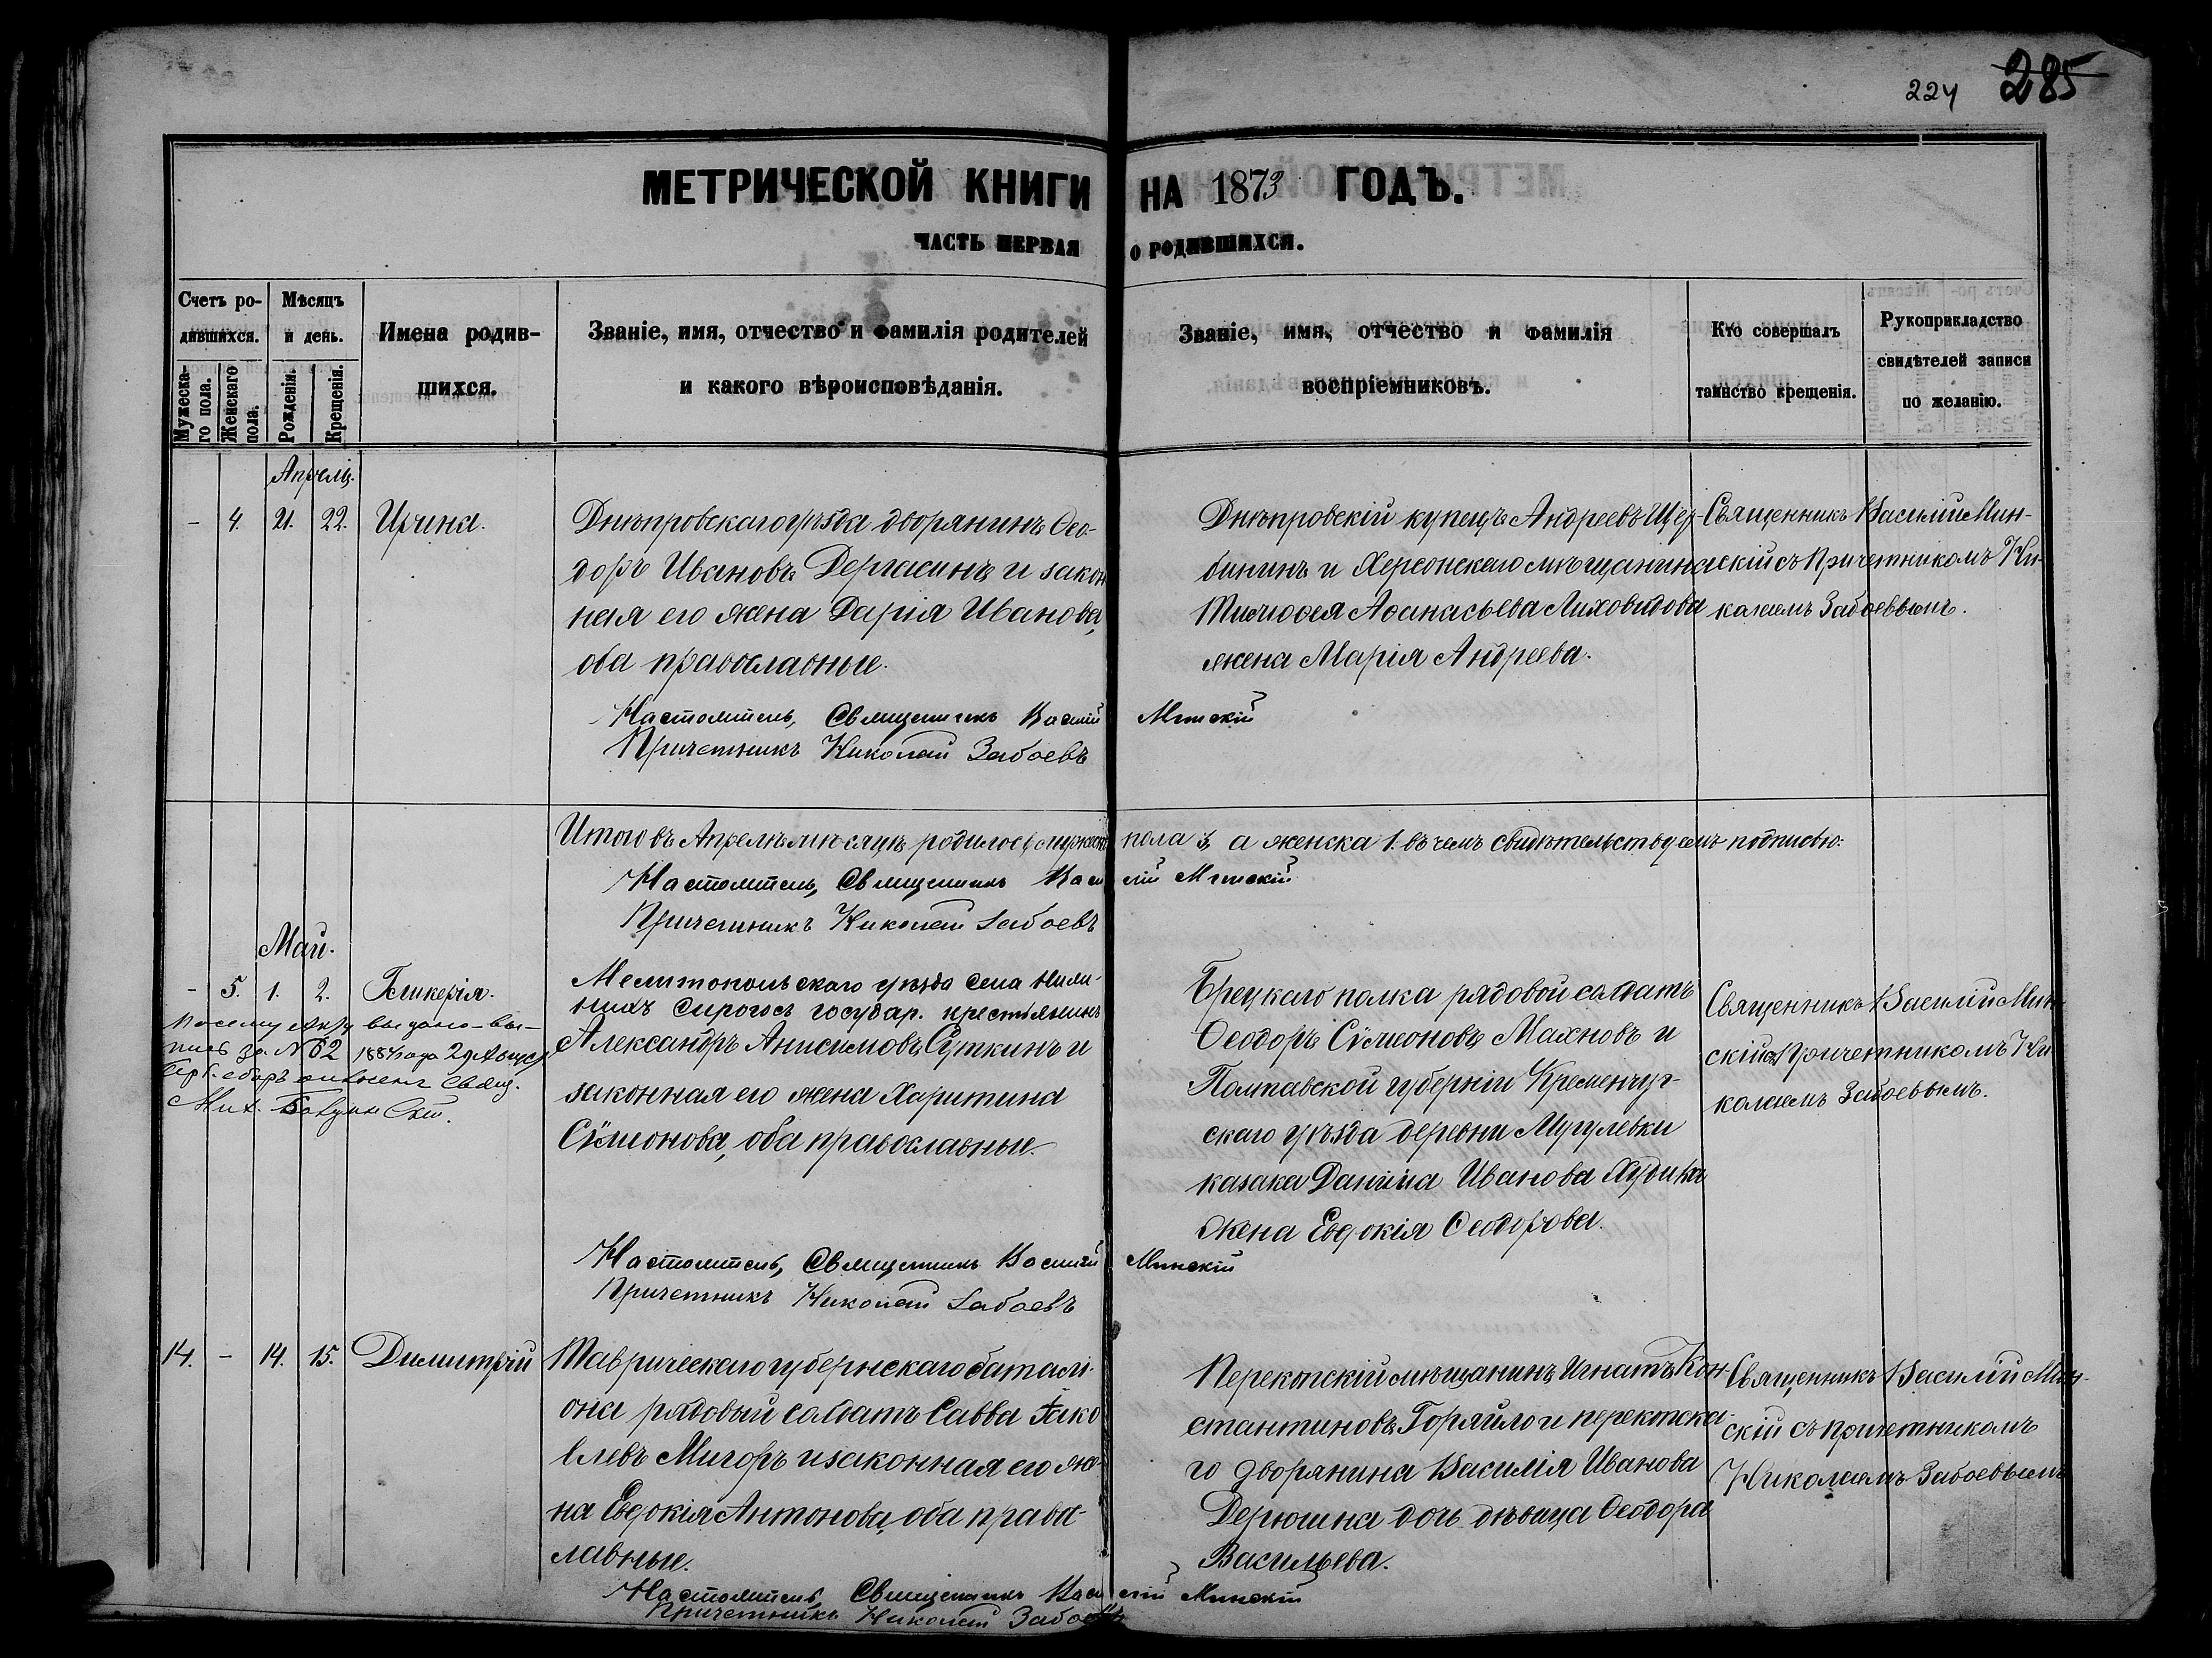 224 285
МЕТРИЧЕСКОЙ КНИГИ НА 1873 ГОДЪ.
ЧАСТЬ ПЕРВАЯ О РОДИВШИХСЯ.
Счетъ ро-
дившихся.
Мужеска-
го пола.
Женскаго
пола.
Мѣсяцъ
и день.
Рожденія.
Крещенія.
Имена родив-
шихся.
Званіе, имя, отчество и фамилія родителей
и какого вѣроисповѣданія.
Званіе, имя, отчество и фамилія
воспріемниковъ.
Кто совершалъ
таинство крещенія.
Рукоприкладство
свидѣтелей записи
по желанію.
Апрель.
- 4. 21. 22. Ирина.
Днѣпровскаго уѣзда дворянинъ Ѳео-
доръ Ивановъ Дергасинъ и закон
ная его жена Дарія Иванова,
оба православные.
Днѣпровскій купецъ Андреевъ Щер-
бининъ и Херсонскаго мѣщанина
Тимоѳея Аѳанасьева Лиховидова
жена Марія Андреева.
Священникъ Василій Мин-
скій съ Причетникомъ Ни-
колаемъ Забоевымъ.
Настоятель, Священникъ Василій Минскій
Причетникъ Николай Забоевъ
Итого въ Апрелѣ мѣсяцѣ родилось мужеска пола 3, а женска 1. въ чемъ свидѣтельствуемъ подписью:
Настоятель, Священникъ Василій Минскій
Причетникъ Николай Забоевъ
Май.
- 5. 1. 2. Гликерія.
По сему акту выдано вы-
пись за № 62 1887 года 29 Август.
Мелитопольскаго уѣзда села Нижнихъ Сирогозъ государ. крестьянинъ
Александръ Анисимовъ Суткинъ и
законная его жена Харитина
Сѵмеонова, оба православные.
полка рядовой солдатъ
Ѳеодоръ Сѵмеоновъ Махновъ и
Полтавской губерніи Кременчуг-
скаго уѣзда деревни Мугулевки
казака Даніила Иванова
жена Евдокія Ѳеодорова.
Священникъ Василій Мин
скій съ Причетникомъ Ни
колаемъ Забоевымъ.
Настоятель, Священникъ Василій Минскій
Причетникъ Николай Забоевъ
14. - 14. 15. Димитрій
Таврическаго губернскаго батали-
она рядовый солдатъ Савва Іако
влевъ Мигоръ и законная его же-
на Евдокія Антонова, оба право-
лавные.
Перекопскій мѣщанинъ Игнатъ Кон-
стантиновъ Горяйло и перекопска-
го дворянина Василія Иванова
Дерюгина дочь дѣвица Ѳеодора
Васильева.
Священникъ Василій Мин-
скій съ причетникомъ
Николаемъ Забоевымъ
Настоятель, Священникъ Василій Минскій
Причетникъ Николай Забоевъ